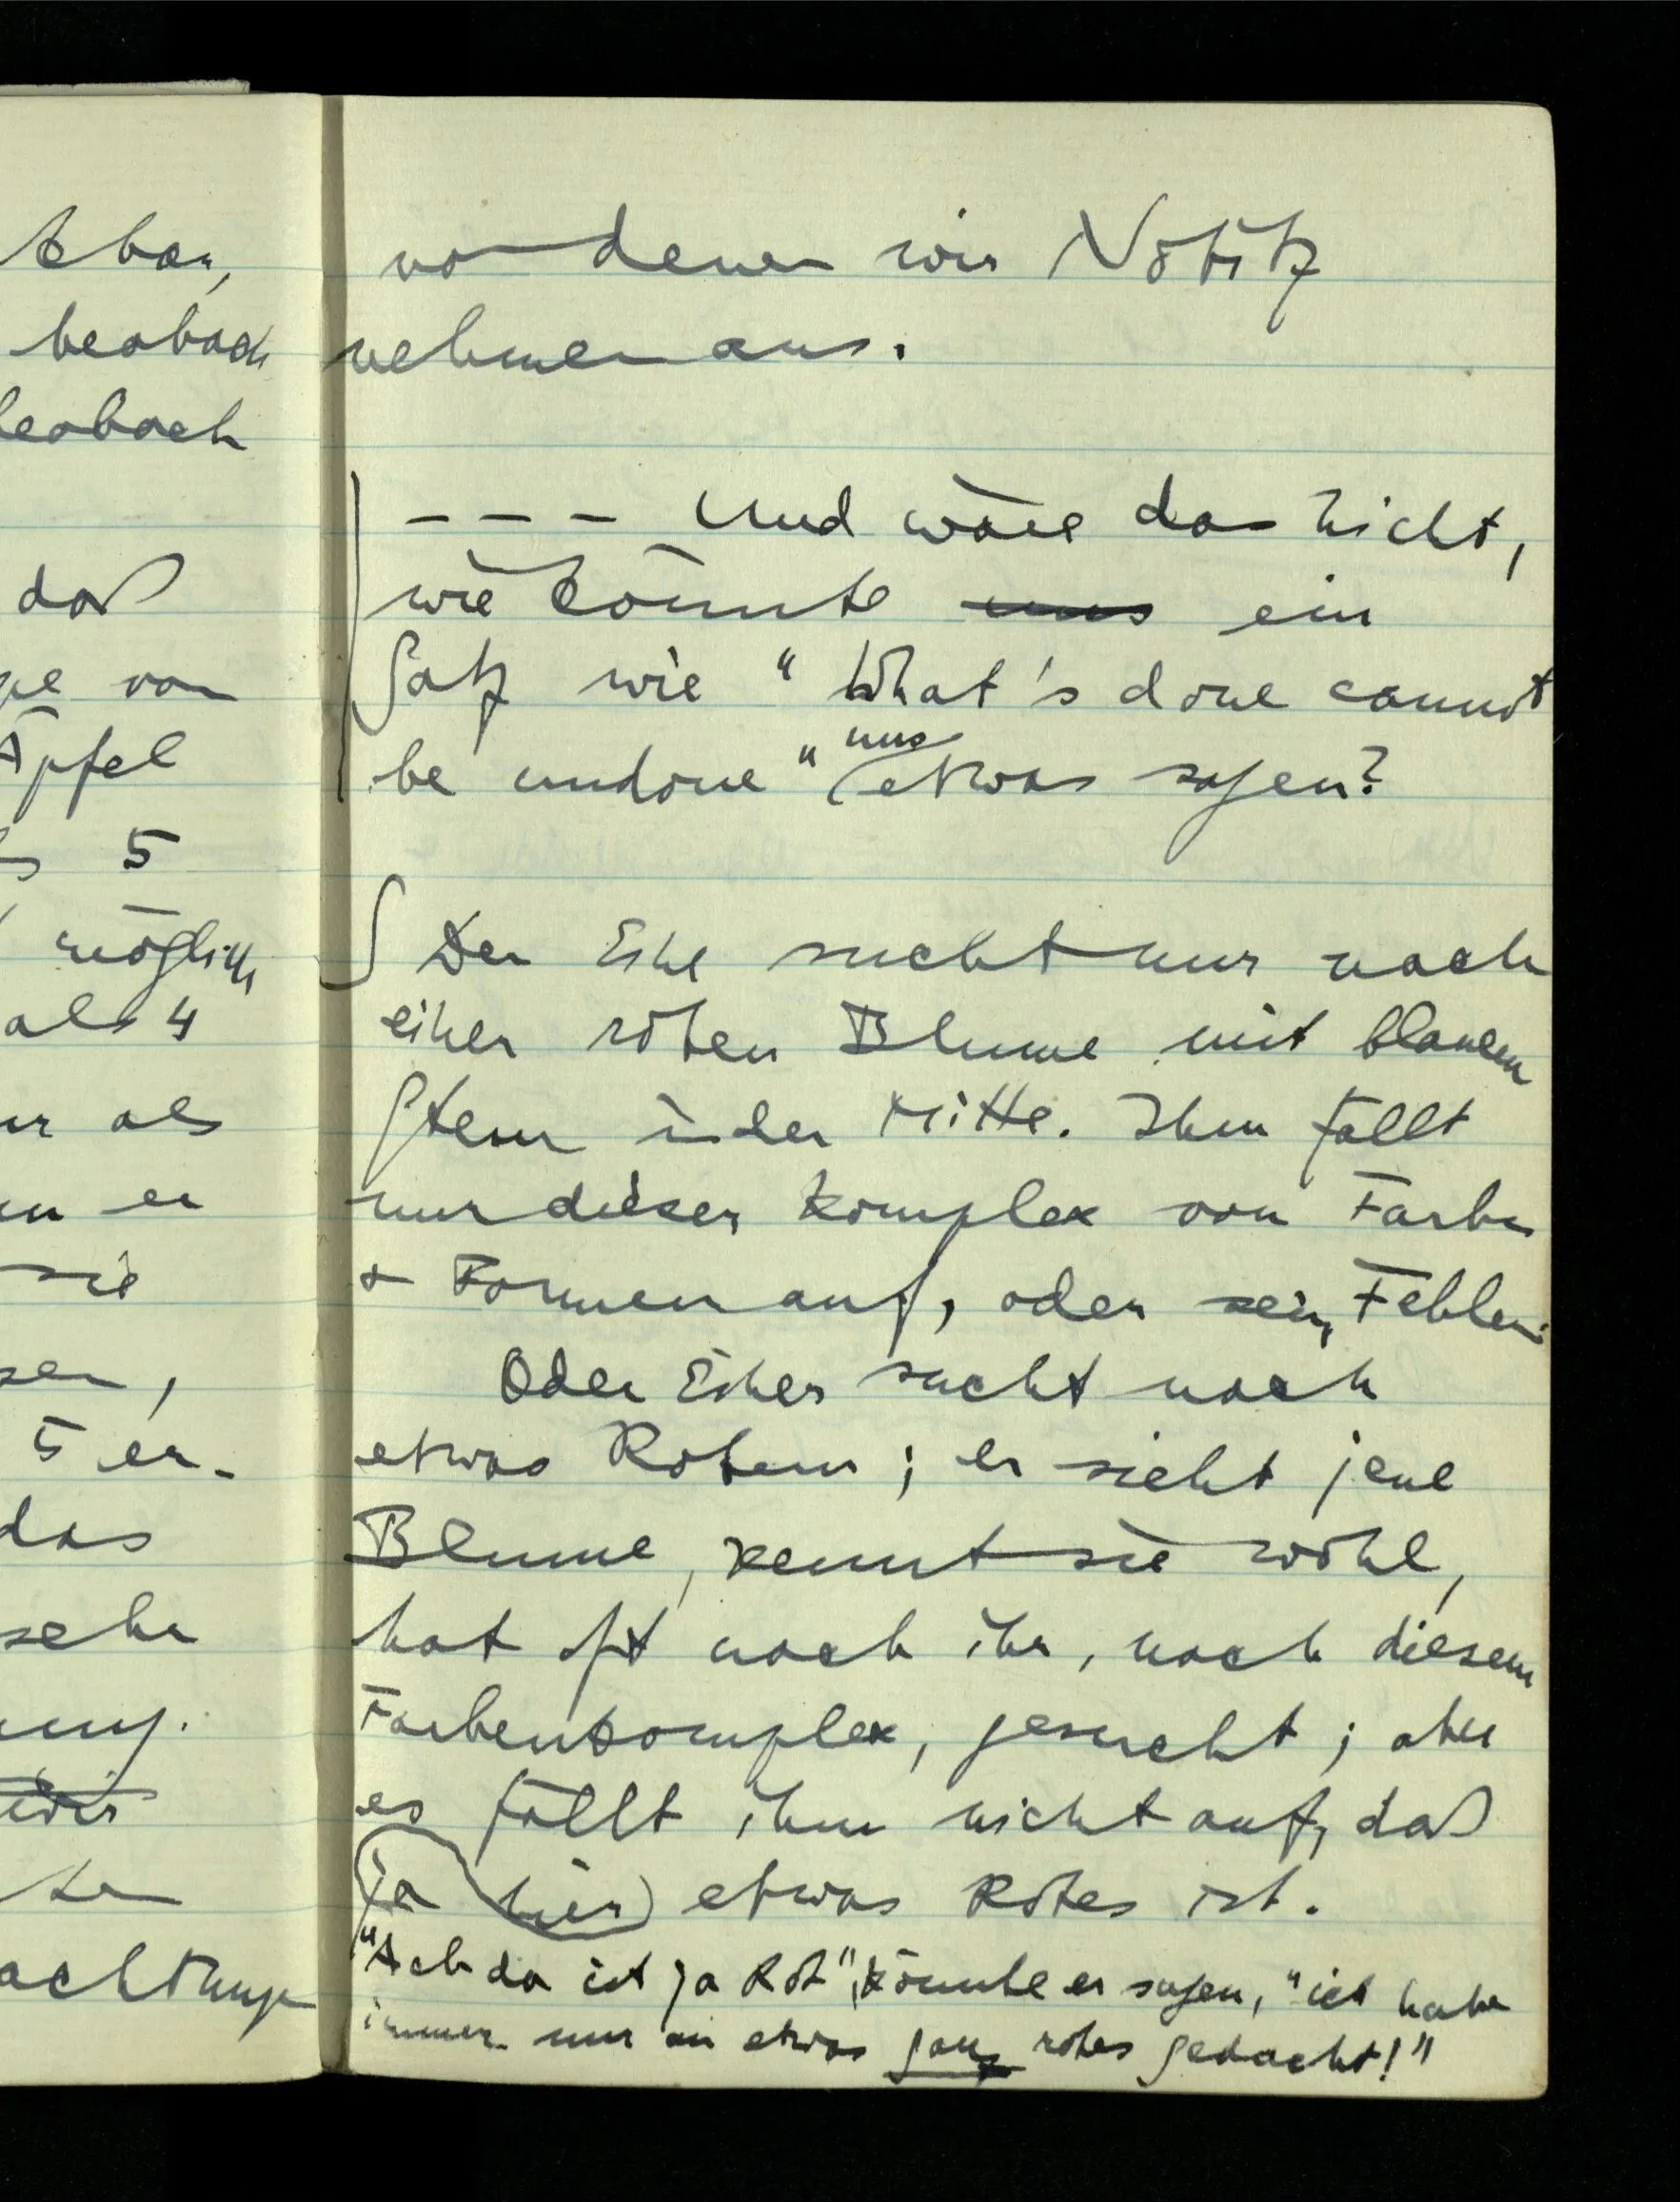 kbar,
beobach
beobach
daß
pe von
Äpfel
5
möglich
als 4
er als
en er
sie
sen,
5 er-
das
sehr
ung.
ten
achtunge
von denen wir Notitz
nehmen aus.
– – – Und wäre das nicht,
wie könnte uns ein
Satz wie “What's done cannot
uns
be undone” etwas sagen?
∫ Der Eine sucht nur nach
einer roten Blume mit blauem
Stern in der Mitte. Ihm fällt
nur dieser Komplex von Farben
& Formen auf, oder sein Fehlen.
Oder Einer sucht nach
etwas Rotem; er sieht jene
Blume, kennt sie wohl,
hat oft nach ihr, nach diesem
Farbenkomplex, gesucht; aber
es fällt ihm nicht auf, daß
ja hier etwas Rotes ist.
“Ach da ist ja Rot”, könnte er sagen, “ich habe
immer nur an etwas ganz rotes gedacht!”